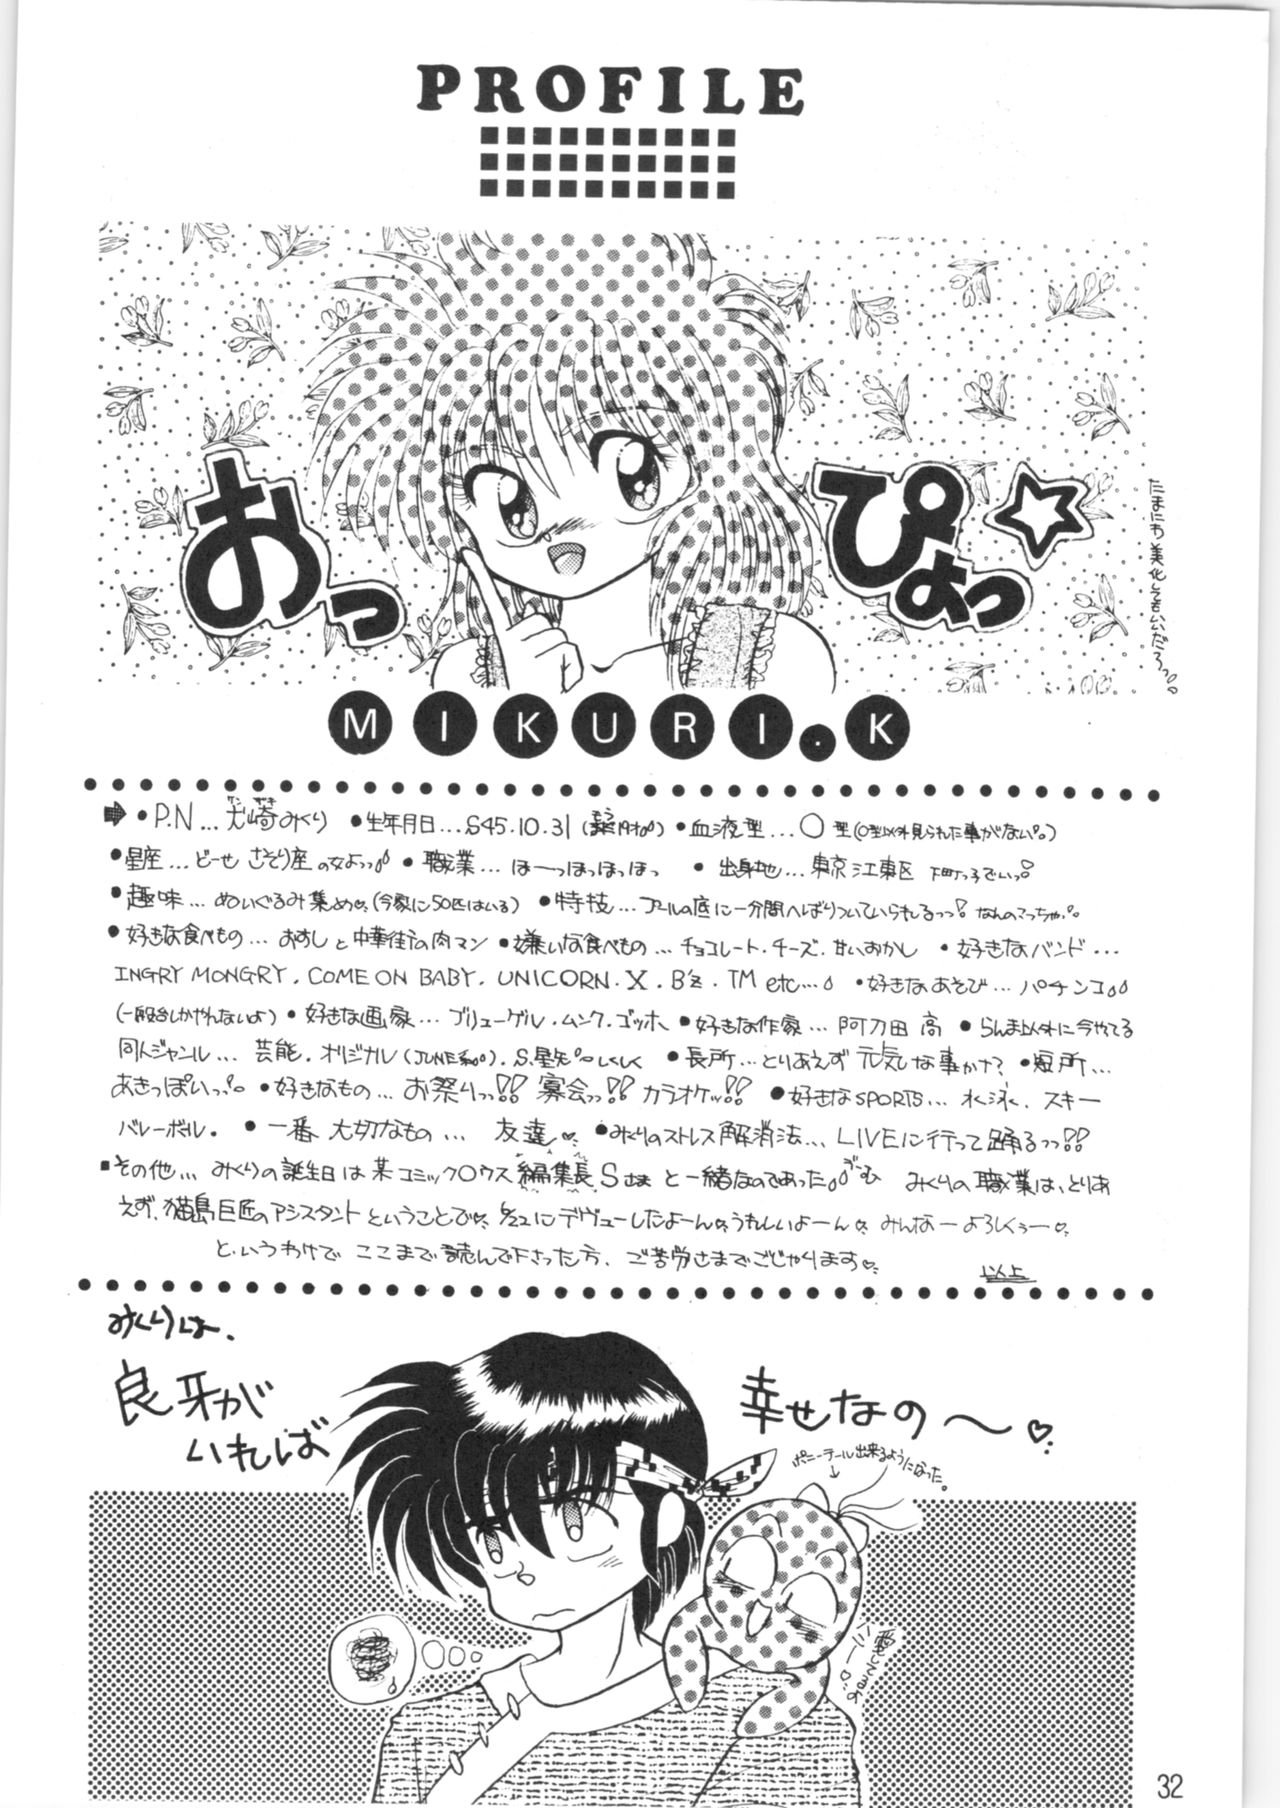 PROFILE
おっ
ぴょっ☆
たまにわ美化してもいいだろっ。。
MIKURI.K
・P.N…犬崎みくり ・生年月日…S45.10.31 ・血液型…○型(O型以外見られた事がない。)
・星座…どーせ さそり座の女よっ ・職業…ほーっほっほっほっ ・出身地…東京江東区 下町っ子でいっ
・趣味…ぬいぐるみ集め♡(今家に50匹はいる) ・特技…プールの底に一分間へばりついていられるっっ! なんのこっちゃ。
・好きな食べもの…おすしと中華街の肉マン・嫌いな食べもの…チョコレート・チーズ、甘いおかし ・好きなバンド…
INGRY MONGRY. COME ON BABY. UNICORN. X. B'z. TM etc… ・好きなあそび…パチンコ
(一段台しかやれないよ)・好きな画家…ブリューゲル・ムンク・ゴッホ・好きな作家…阿刀田 高 ・らんま以外に今やてる
同人ジャンル…芸能。オリジナル(JUNE系)。S.星矢 しくしく ・長所…とりあえず元気な事かナ?・短所…
あきっぽいっ ・好きなもの…お祭りっっ!! 宴会っっ!! カラオケッ!! ・好きなSPORTS…水泳、スキー
バレーボル。 ・一番大切なもの…友達♡ ・みくりのストレス解消法…LIVEに行って踊るっっ!!
・その他…みくりの誕生日は某コミック○ウス編集長Sさまと一緒なのであった みくりの職業は、とりあ
えず、猫島巨匠のアシスタントということで♡ 8/22にデヴューしたよーん♡うれしいよーん♡ みんなーよろしくぅー♡
というわけで ここまで読んで下さった方、ご苦労さまでごじゃります♡ 以上
みくりはー、
良牙が
いれば
幸せなの〜♡
ポニーテール出来るようになった。
32